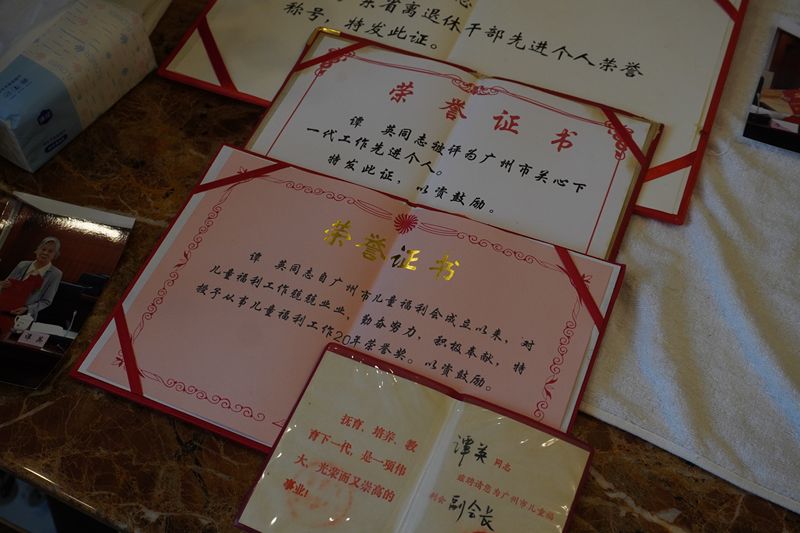 东省离退休干部先进个人荣誉
称号，特发此证。
荣誉证书
谭 英同志被评为广州市关心下
一代工作先进个人。
特发此证，以资鼓励。
荣誉证书
谭 英同志自广州市儿童福利会成立以来，对
儿童福利工作兢兢业业，勤奋努力，积极奉献，特
授予从事儿童福利工作20年荣誉奖。以资鼓励。
抚育、培养、教
育下一代，是一项伟
大、光荣而又崇高的
事业！
谭英 同志
兹聘请您为广州市儿童福
利会 副会长
谭英